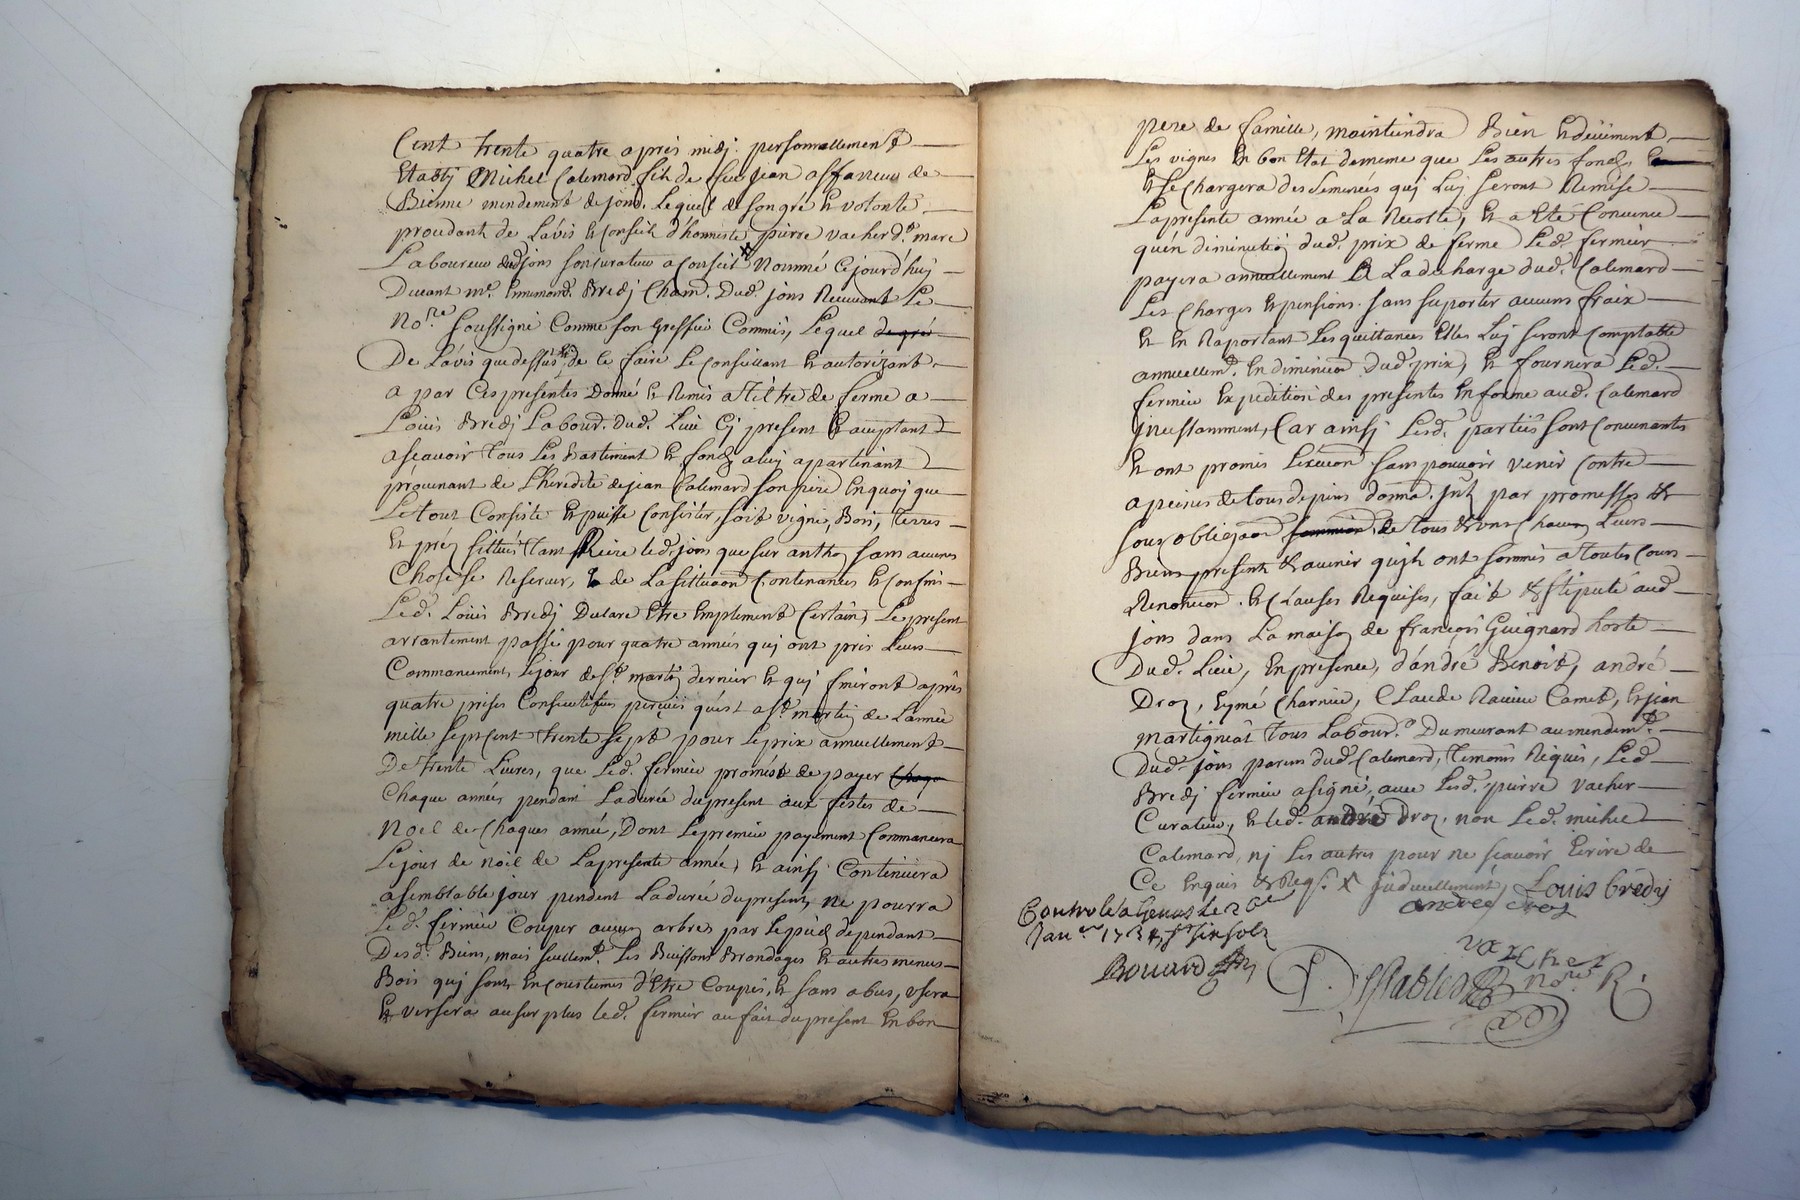 Cent trente quatre apres midj. personnellement
Etablj Michel Calemard fils de feu jean affaneur de
Bienne mendement de jons. Lequel de son gré et volonté
procedant de Lavis et Conseil d'honneste pierre vacher d. marc
Laboureur dud jons son curateur a Conseil X Nommé Cejourd'huj
Devant me. Ennemond. Bredj Chatn. Dud. jons Recevant Le
Nore. soussigné Comme son Greffier Commis, Lequel de gré
De Lavis que dessus et de ce faire Le Conseillant et autorizant
a par Ces presentes Donné et Remis a Tiltre de ferme a
Loüis Bredj Labour. Dud. Lieu Cj present et acceptant
ascavoir Tous Les Bastiment et fondz a luj appartenant
provenant de Lheredité de jean Calemard son frere En quoj que
Le tout Consiste et puisse Consister, soit vigne, Bois, Terres
et prez sittués Tant Riere led. jons que sur anthon sans aucunes
Chose se Reserver, de La sittuaon Contenances et Confins
Led. Loüis Bredj Declare Etre Emplement Certain, Le present
arrantement passé pour quatre années quj ont pris Leurs
Commancement, Le jour de st. martin dernier et quj finiront après
quatre prises Consecutifves perçües qu'est a st. martin de L'année
mille sept Cent trente sept pour Le prix annuellement
De trente Livres, que Led. fermier promest de payer Chaque
Chaque années pendant La durée du present aux festes de
Noel de Chaques année, Dont Le premier payement Commancera
Le jour de noel de La presente année, et ainsj Continuera
a semblable jour pendent La durée du present, ne pourra
Led. fermier Couper aucun arbres par Le pied dependant
Desd. Biens, mais seullemt. Les Buissons Brondages et autres menus
Bois quj sont En Coustumes d'Etre Coupés, et sans abus, usera
et versera au surplus led. fermier au fait du present En bon
pere de famille, maintiendra Bien et deüement
Les vignes En bon Etat de meme que Les autres fondz
et se Chargera des Semences quj Luj seront Remise
La presente année a La Recolte, et a Eté Convenu
qu'en diminution dud. prix de ferme Led. fermier
payera annuellement a La decharge dud. Calemard
Les Charges et pensions. sans suporter aucuns fraix
et En Raportant Les quittances Elles Luj seront Comptable
annuellemt. En diminuon dud. prix, et fournira Led.
fermier Expedition des presentes En forme aud. Calemard
Incessamment, Car ainsj Lesd. parties sont Convenantes
et ont promis Lexecuon sans pouvoir venir Contre
a peines de tous depens domma. Intz par promesses et
sous obligaon de tous et uns Chacuns Leurs
Biens presents et avenir qu'jls ont soumis a Toutes Cours
Renonciaon. et Clauses Requises, fait et stipulé aud
jons dans La maison de françois Guignard hoste
Dud. Lieu, En presence, d'andré Benoit, andré
Droz, Eymé Charnier, Claude Ravier Camet, et jean
martignat Tous Labour.s Demeurant au mendemt.
Dud. jons parens dud. Calemard, Temoins Requis, Led.
Bredj fermier a signé, avec Lesd. pierre vacher
Curateur, et led. andré Droz, non Led. michel
Calemard, nj Les autres pour ne scavoir Ecrire de
Ce Enquis et Reqs. X judiciellement, Louis bredy
andre droz
Controllé a Genas Le 26e
Janer. 1734 st. six solz
vacher
Bouard
Desstables Nore. R.